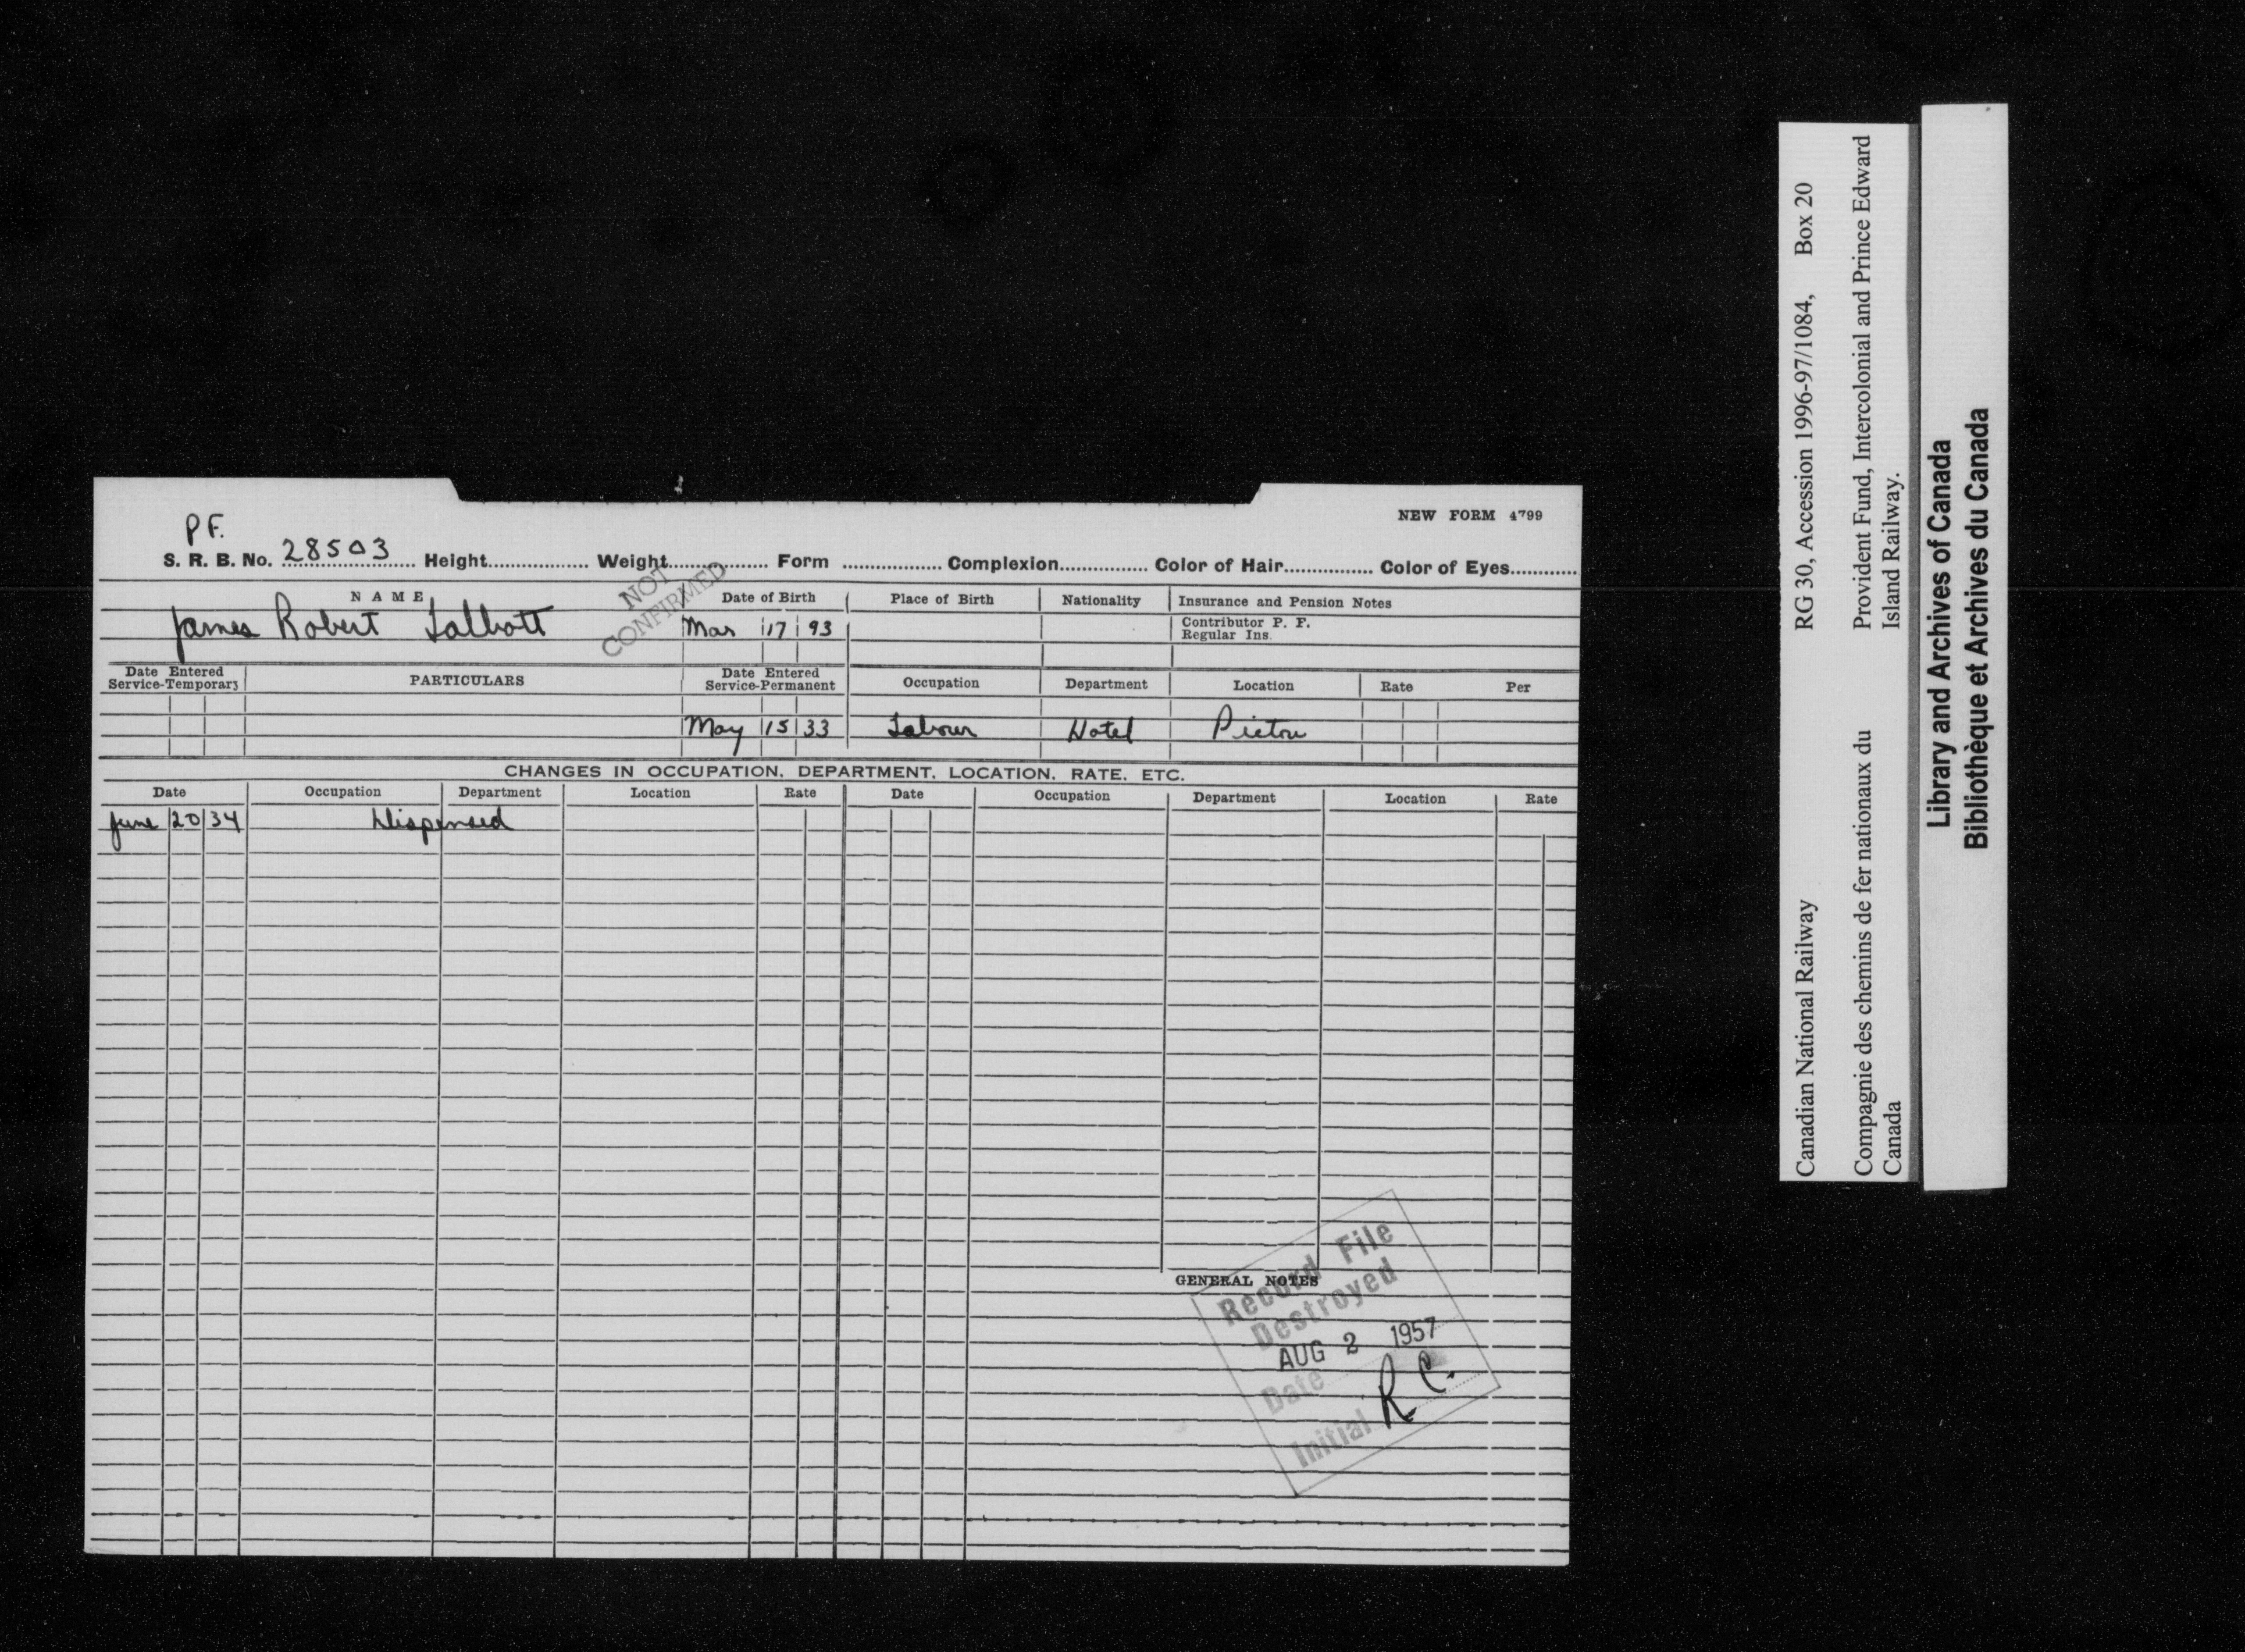 PF.
NEW FORM 4799
S. R. B. No. 28503 Height Weight Form Complexion Color of Hair Color of Eyes
NOT CONFIRMED
NAME Date of Birth Place of Birth Nationality Insurance and Pension Notes
James Robert Talbott Mar 17 93 Contributor P. F.
Regular Ins.
Date Entered Service-Temporary PARTICULARS Date Entered Service-Permanent Occupation Department Location Rate Per
May 15 33 Labour Hotel Pictou
CHANGES IN OCCUPATION, DEPARTMENT, LOCATION, RATE, ETC.
Date Occupation Department Location Rate Date Occupation Department Location Rate
June 20 34 Dispensed
GENERAL NOTES
Record File
Destroyed
AUG 2 1957
Date
Initial R C.
Canadian National Railway RG 30, Accession 1996-97/1084, Box 20
Compagnie des chemins de fer nationaux du Provident Fund, Intercolonial and Prince Edward
Canada Island Railway.
Library and Archives of Canada
Bibliothèque et Archives du Canada